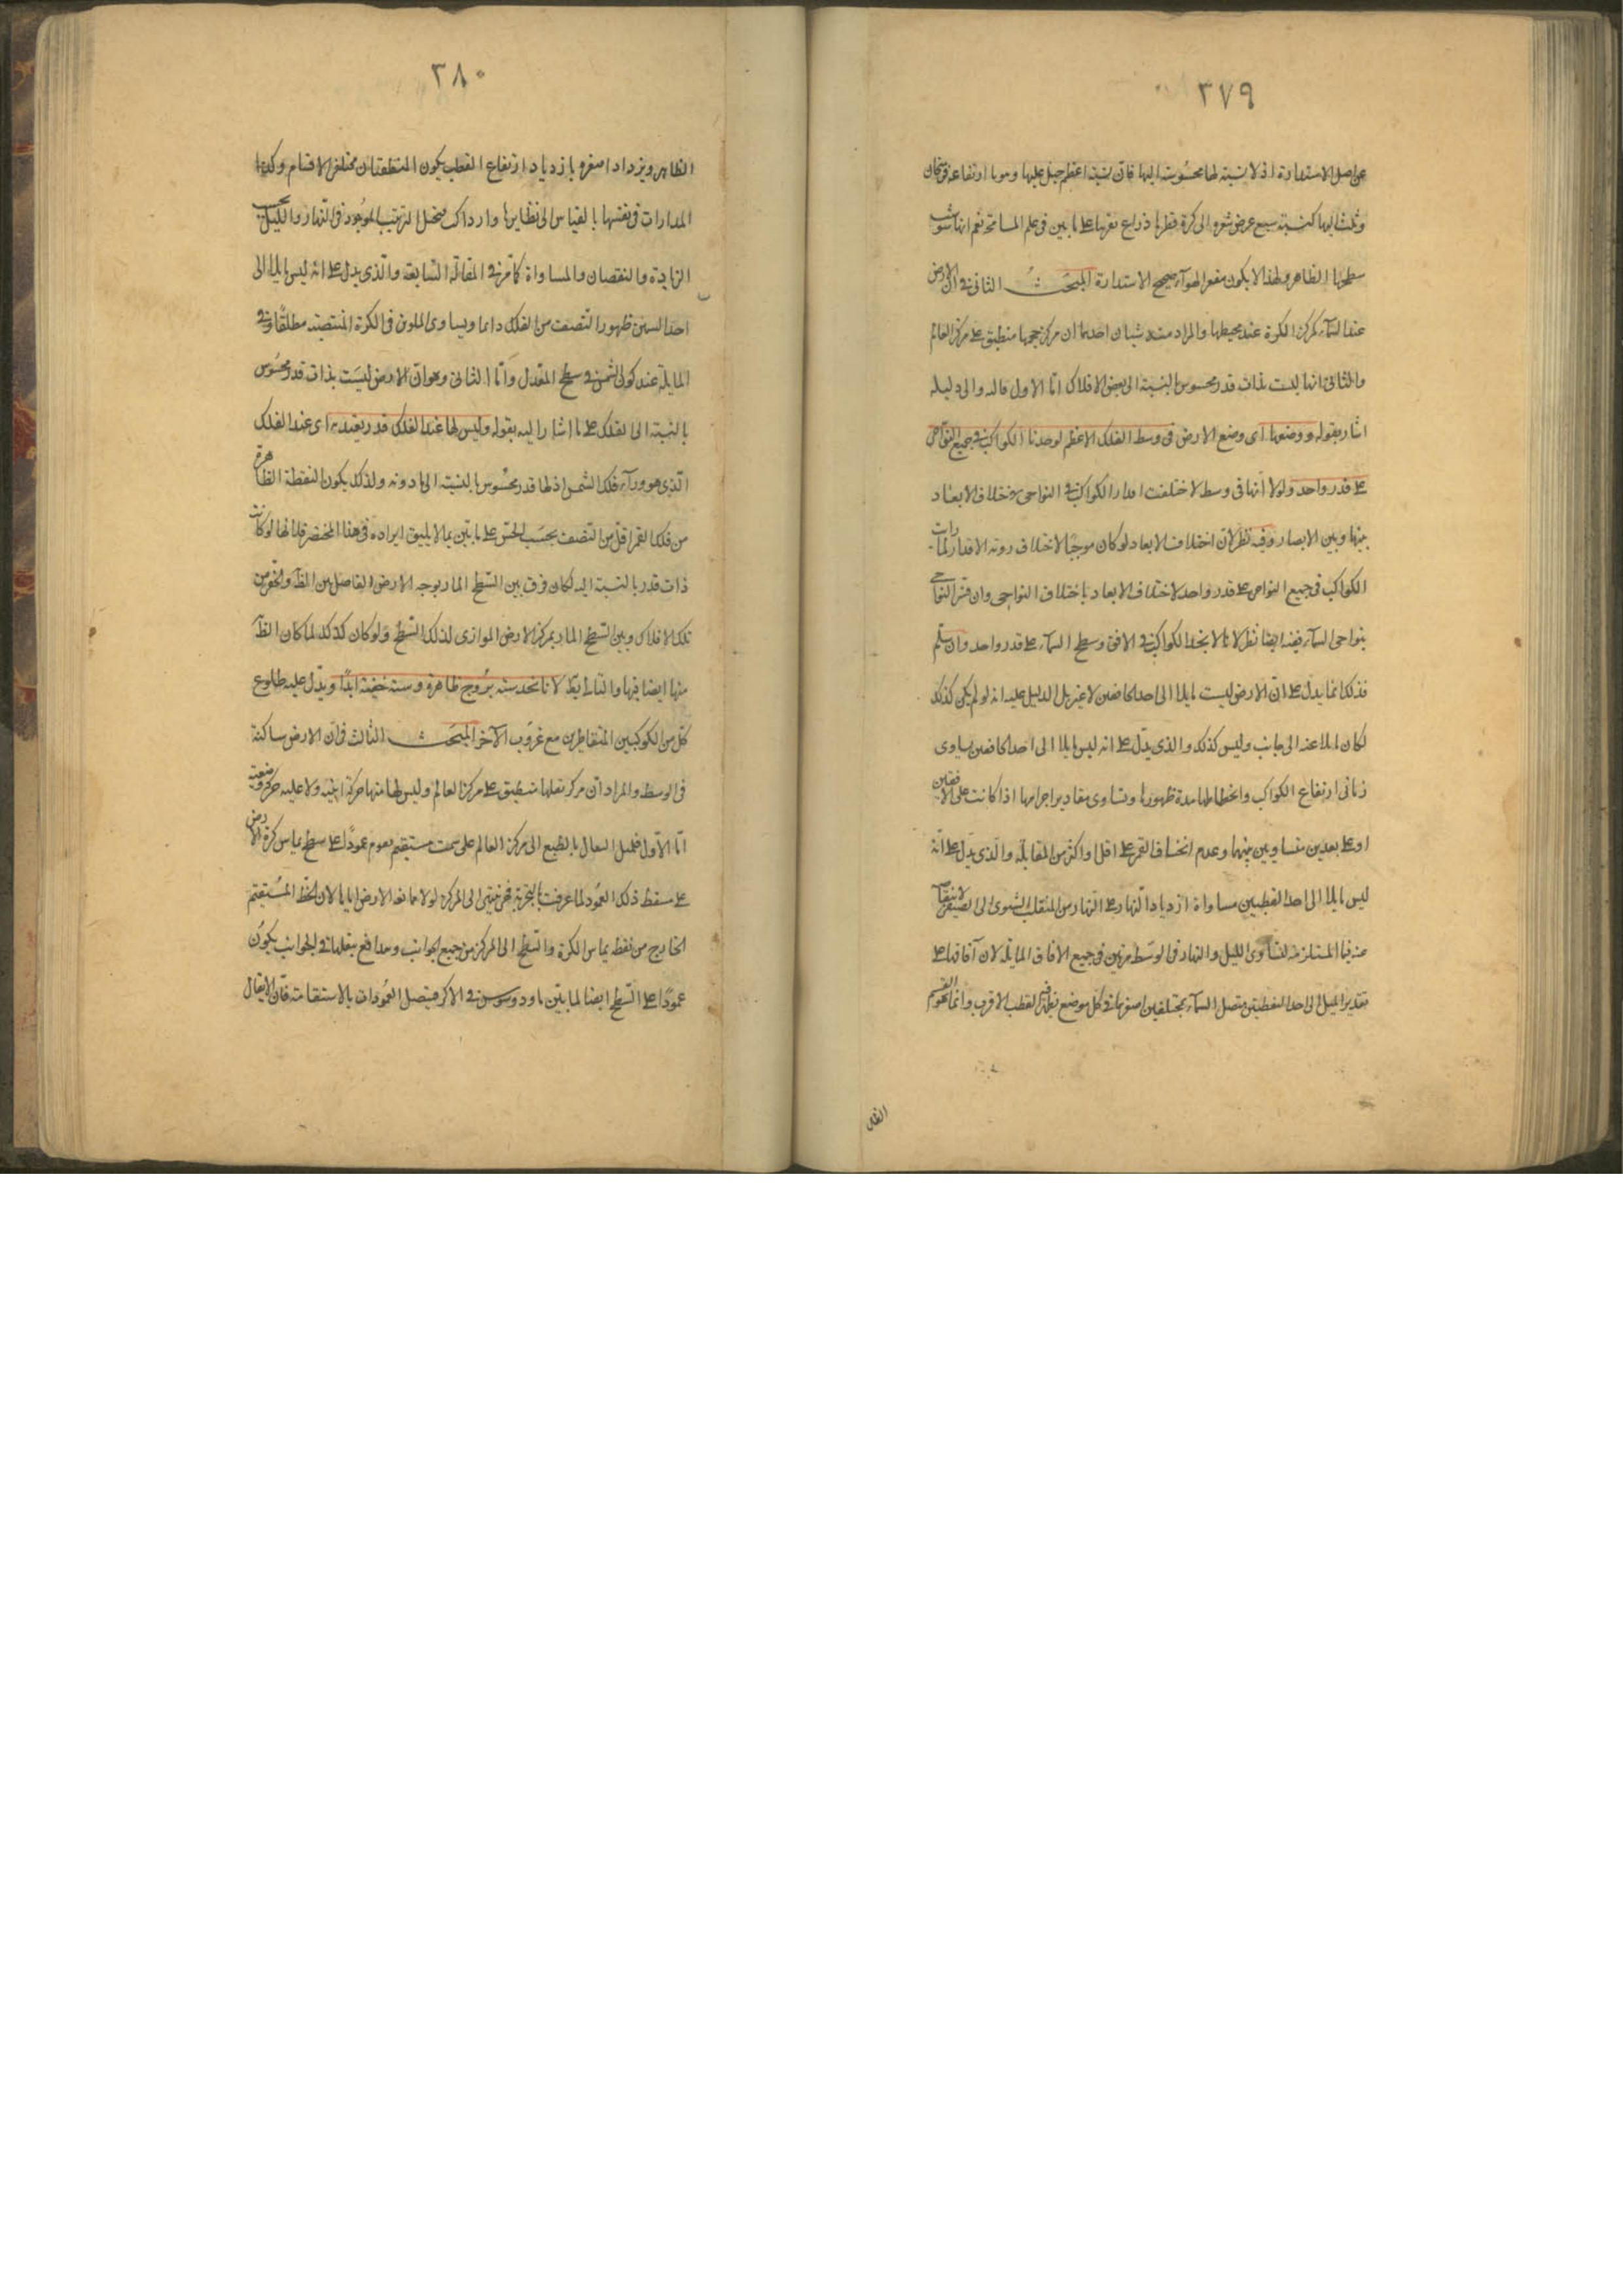 ٣٧٩
عن اصل الاستدارة اذ لا نسبة لها محسوسة اليها فان نسبة اعظم جبل عليها وهو ما ارتفاعه فرسخان
وثلث اليها كنسبة سبع عرض شعيرة الى كرة قطرها ذراع تقريبا على ما بين في علم المساحة نعم انها
سطحها الظاهر ولهذا لا يكون مقعر الهواء صحيح الاستدارة المبحث الثانى فى ان الارض
عند السماء كمركز الكرة عند محيطها والمراد منه شيئان احدهما ان مركز حجمها منطبق على مركز العالم
والثانى انها ليست بذات قدر محسوس بالنسبة الى بعض الافلاك اما الاول فاليه والى دليله
اشار بقوله ووضعها اى وضع الارض فى وسط الفلك الاعظم لوجدنا الكواكب فى جميع النواحى
على قدر واحد ولولا انها فى وسط لاختلفت اقدار الكواكب فى النواحى لاختلاف الابعاد
بينها وبين الابصار وفيه نظر لان اختلاف الابعاد لو كان موجبا لاختلاف روية الاقدار لما رات
الكواكب فى جميع النواحى على قدر واحد لاختلاف الابعاد باختلاف النواحى وان فسر النواحى
بنواحى السماء ففيه ايضا نظر لانا لا نجد الكواكب فى الافق وسط السماء على قدر واحد وان سلم
فذلك انما يدل على ان الارض ليست مايلا الى احد الخافقين لا غير بل الدليل عليه انه لو لم يكن كذلك
لكان مايلا عنه الى جانب وليس كذلك والذى يدل على انه ليس مايلا الى احد الخافقين تساوى
زمانى ارتفاع الكواكب وانحطاطها مدة ظهورها وتساوى مقادير اجرامها اذا كانت على الافقين
او على بعدين متساويين منهما وعدم انخساف القمر على اقل واكثر من المقابلة والذى يدل على انه
ليس مايلا الى احد القطبين مساواة ازدياد النهار على النهار من المنقلب الشتوى الى الصيفى
عنه فيها المستلزمة لتساوى الليل والنهار فى الوسط مرتين فى جميع الافاق المايلة لان آفاقها على
تقدير الميل الى احد القطبين يفصل السماء بمختلفين اصغرهما فى كل موضع القطب الاقرب وانما
الظاهر
٣٨٠
الظاهر ويزداد اصغره بازدياد ارتفاع القطب يكون المنطقتان مختلفى الاقسام وكذا
المدارات فى نفسها بالقياس الى نظايرها واذ ذاك يختل الترتيب الموجود فى النهار والليل بحسب
الزيادة والنقصان والمساواة كما مر فى المقالة السابقة والذى يدل على انه ليس مايلا الى
احد السمتين ظهور النصف من الفلك دائما وتساوى الملوين فى الكرة المنتصبة مطلقا وفى
المايلة عند كون الشمس فى سطح المعدل واما الثانى وهو ان الارض ليست بذات قدر محسوس
بالنسبة الى الفلك على ما اشار اليه بقوله وليس لها عند الفلك قدر يعتد به اى عند الفلك
الذى هو وراء فلك الشمس اذ لها قدر محسوس بالنسبة الى ما دونه ولذلك يكون النقطة الظاهرة
من فلك القمر اقل من النصف بحسب الحس على ما بين بما لا يليق ايراده فى هذا المختصر فلانها لو كانت
ذات قدر بالنسبة اليه لكان فرق بين السطح المار بوجه الارض الفاصل بين الظاهر والخفى من
تلك الافلاك وبين السطح المار بمركز الارض الموازى لذلك السطح ولو كان كذلك لما كان الظاهر
منها نصفا فيها والتالى باطل لانا نجد ستة بروج ظاهرة وستة خفية ابدا ويدل عليه طلوع
كل من الكوكبين المتقاطرين مع غروب الآخر المبحث الثالث فى ان الارض ساكنة
فى الوسط والمراد ان مركز ثقلها منطبق على مركز العالم وليس لها منها حركة اينية ولا عليه حركة وضعية
اما الاول فلميل الثقال بالطبع الى مركز العالم على سمت مستقيم يقوم عمودا على سطح يماس كرة الارض
على مسقط ذلك العمود لما عرفت بالتجربة فهى تنتهى الى المركز لولا ممانعة الارض اياها لان الخط المستقيم
الخارج من نقطة تماس الكرة والسطح الى المركز من جميع الجوانب ومدافع بثقلها فى الجوانب يكون
عمودا على السطح ايضا لما بين ثاودوسيوس فى الاكر فيتصل العمودان بالاستقامة فان الاثقال